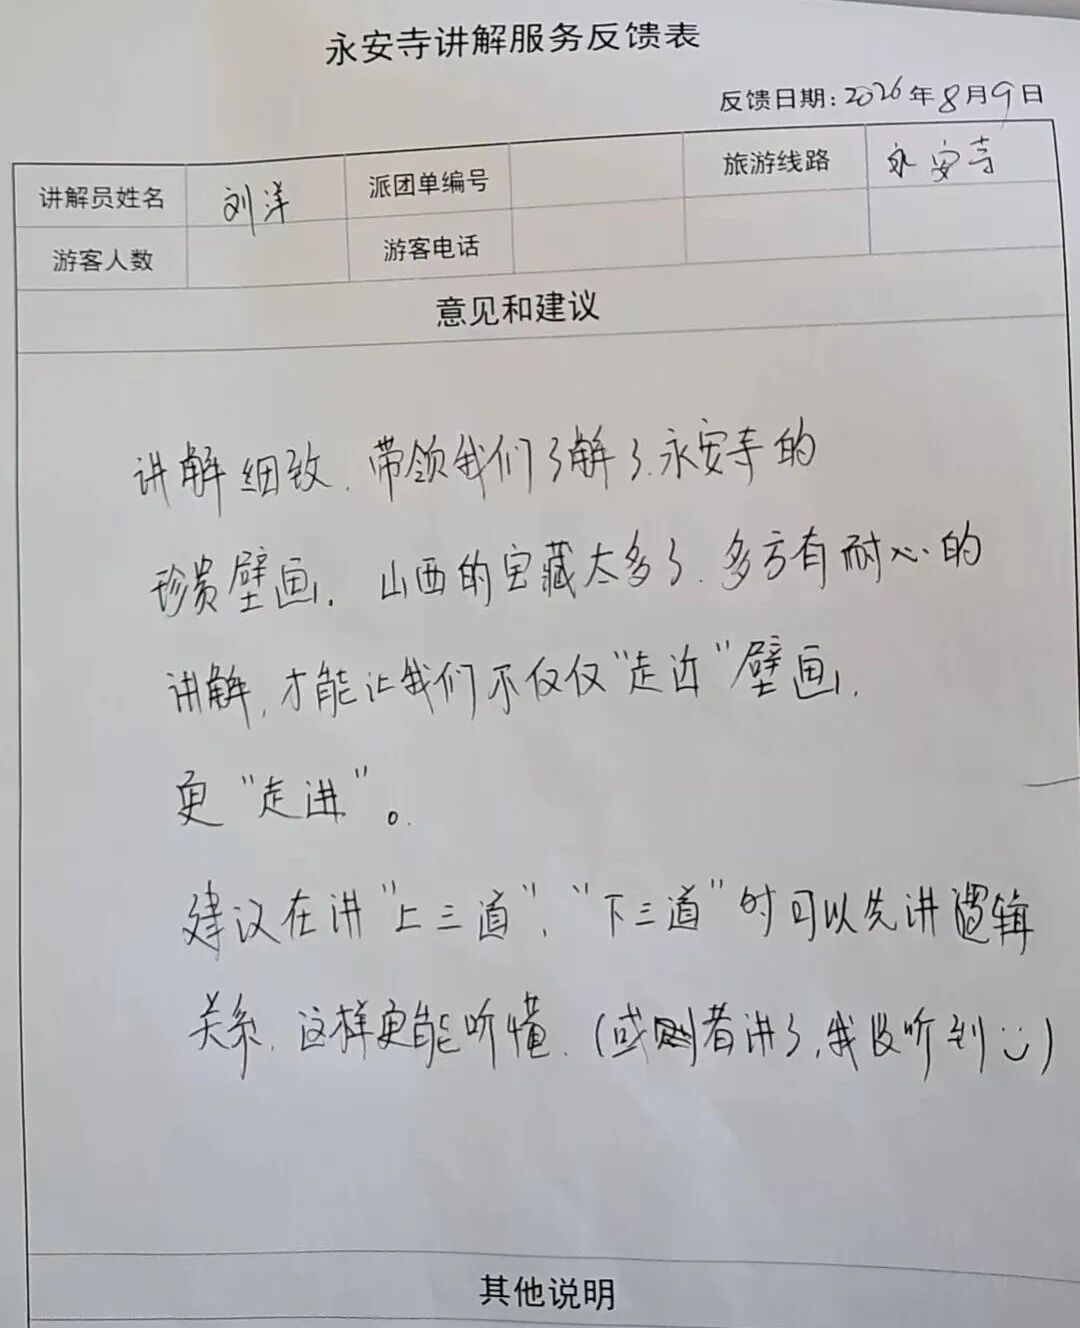 永安寺讲解服务反馈表
反馈日期:2026年8月9日
讲解员姓名 刘洋 派团单编号 旅游线路 永安寺
游客人数 游客电话
意见和建议
讲解细致.带领我们了解了.永安寺的
珍贵壁画.山西的宝藏太多了.多方有耐心的
讲解,才能让我们不仅仅“走近”壁画,
更“走进”。
建议在讲“上三道”,“下三道”时可以先讲逻辑
关系.这样更能听懂.(或者讲了,我没听到:))
其他说明